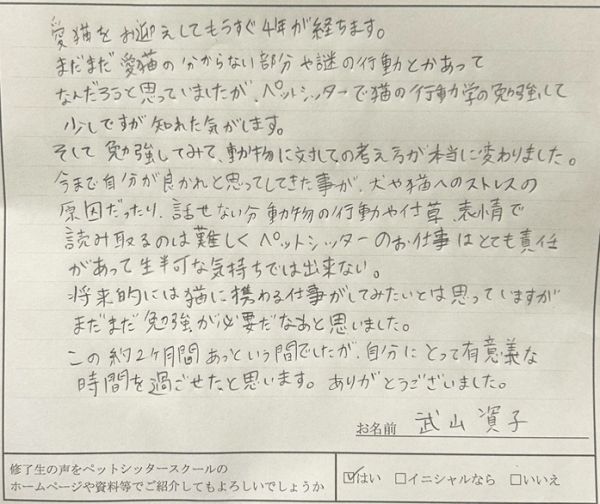 愛猫をお迎えしてもうすぐ4年が経ちます。
まだまだ愛猫の分からない部分や謎の行動とかあって
なんだろうと思っていましたが、ペットシッターで猫の行動学の勉強して
少しですが知れた気がします。
そして勉強してみて、動物に対しての考え方が本当に変わりました。
今まで自分が良かれと思ってしてきた事が、犬や猫へのストレスの
原因だったり、話せない分動物の行動や仕草、表情で
読み取るのは難しくペットシッターのお仕事はとても責任
があって生半可な気持ちでは出来ない。
将来的には猫に携わる仕事がしてみたいとは思っていますが
まだまだ勉強が必要だなあと思いました。
この約2ヶ月間あっという間でしたが、自分にとって有意義な
時間を過ごせたと思います。ありがとうございました。
お名前 武山 子
修了生の声をペットシッタースクールの
ホームページや資料等でご紹介してもよろしいでしょうか
☑はい □イニシャルなら □いいえ